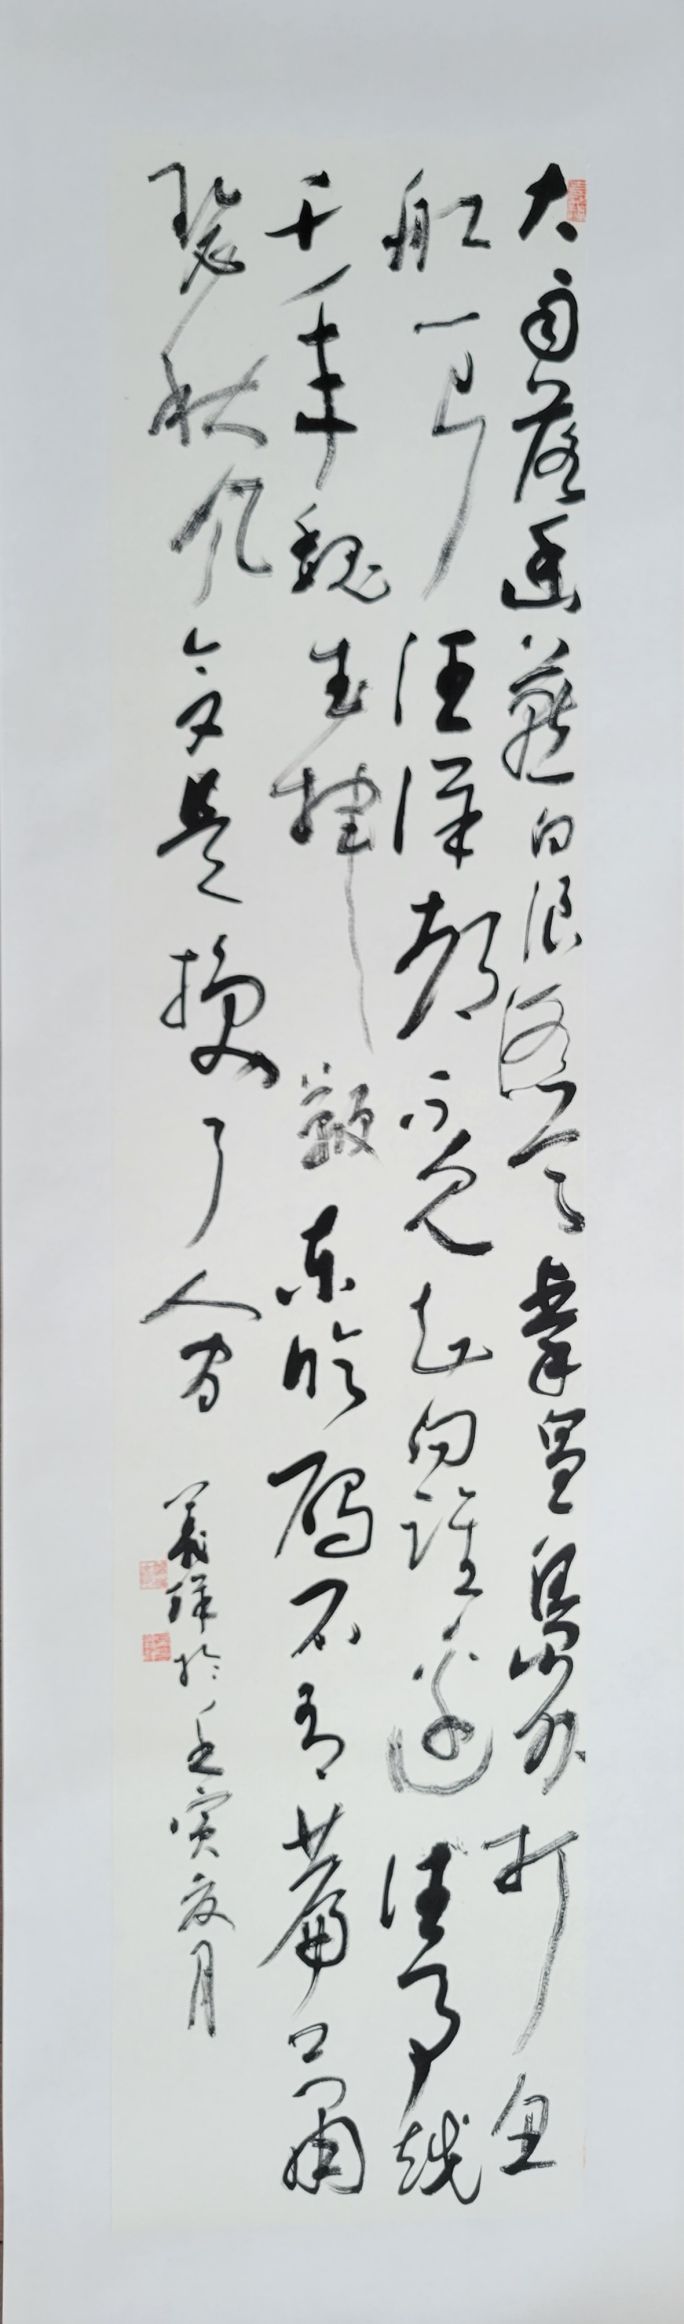 大雨落幽燕白浪滔天秦皇岛外打鱼
船一片汪洋都不见知向谁边往事越
千年魏武挥鞭东临碣石有遗篇萧
瑟秋风今又是换了人间
义祥于壬寅夏月